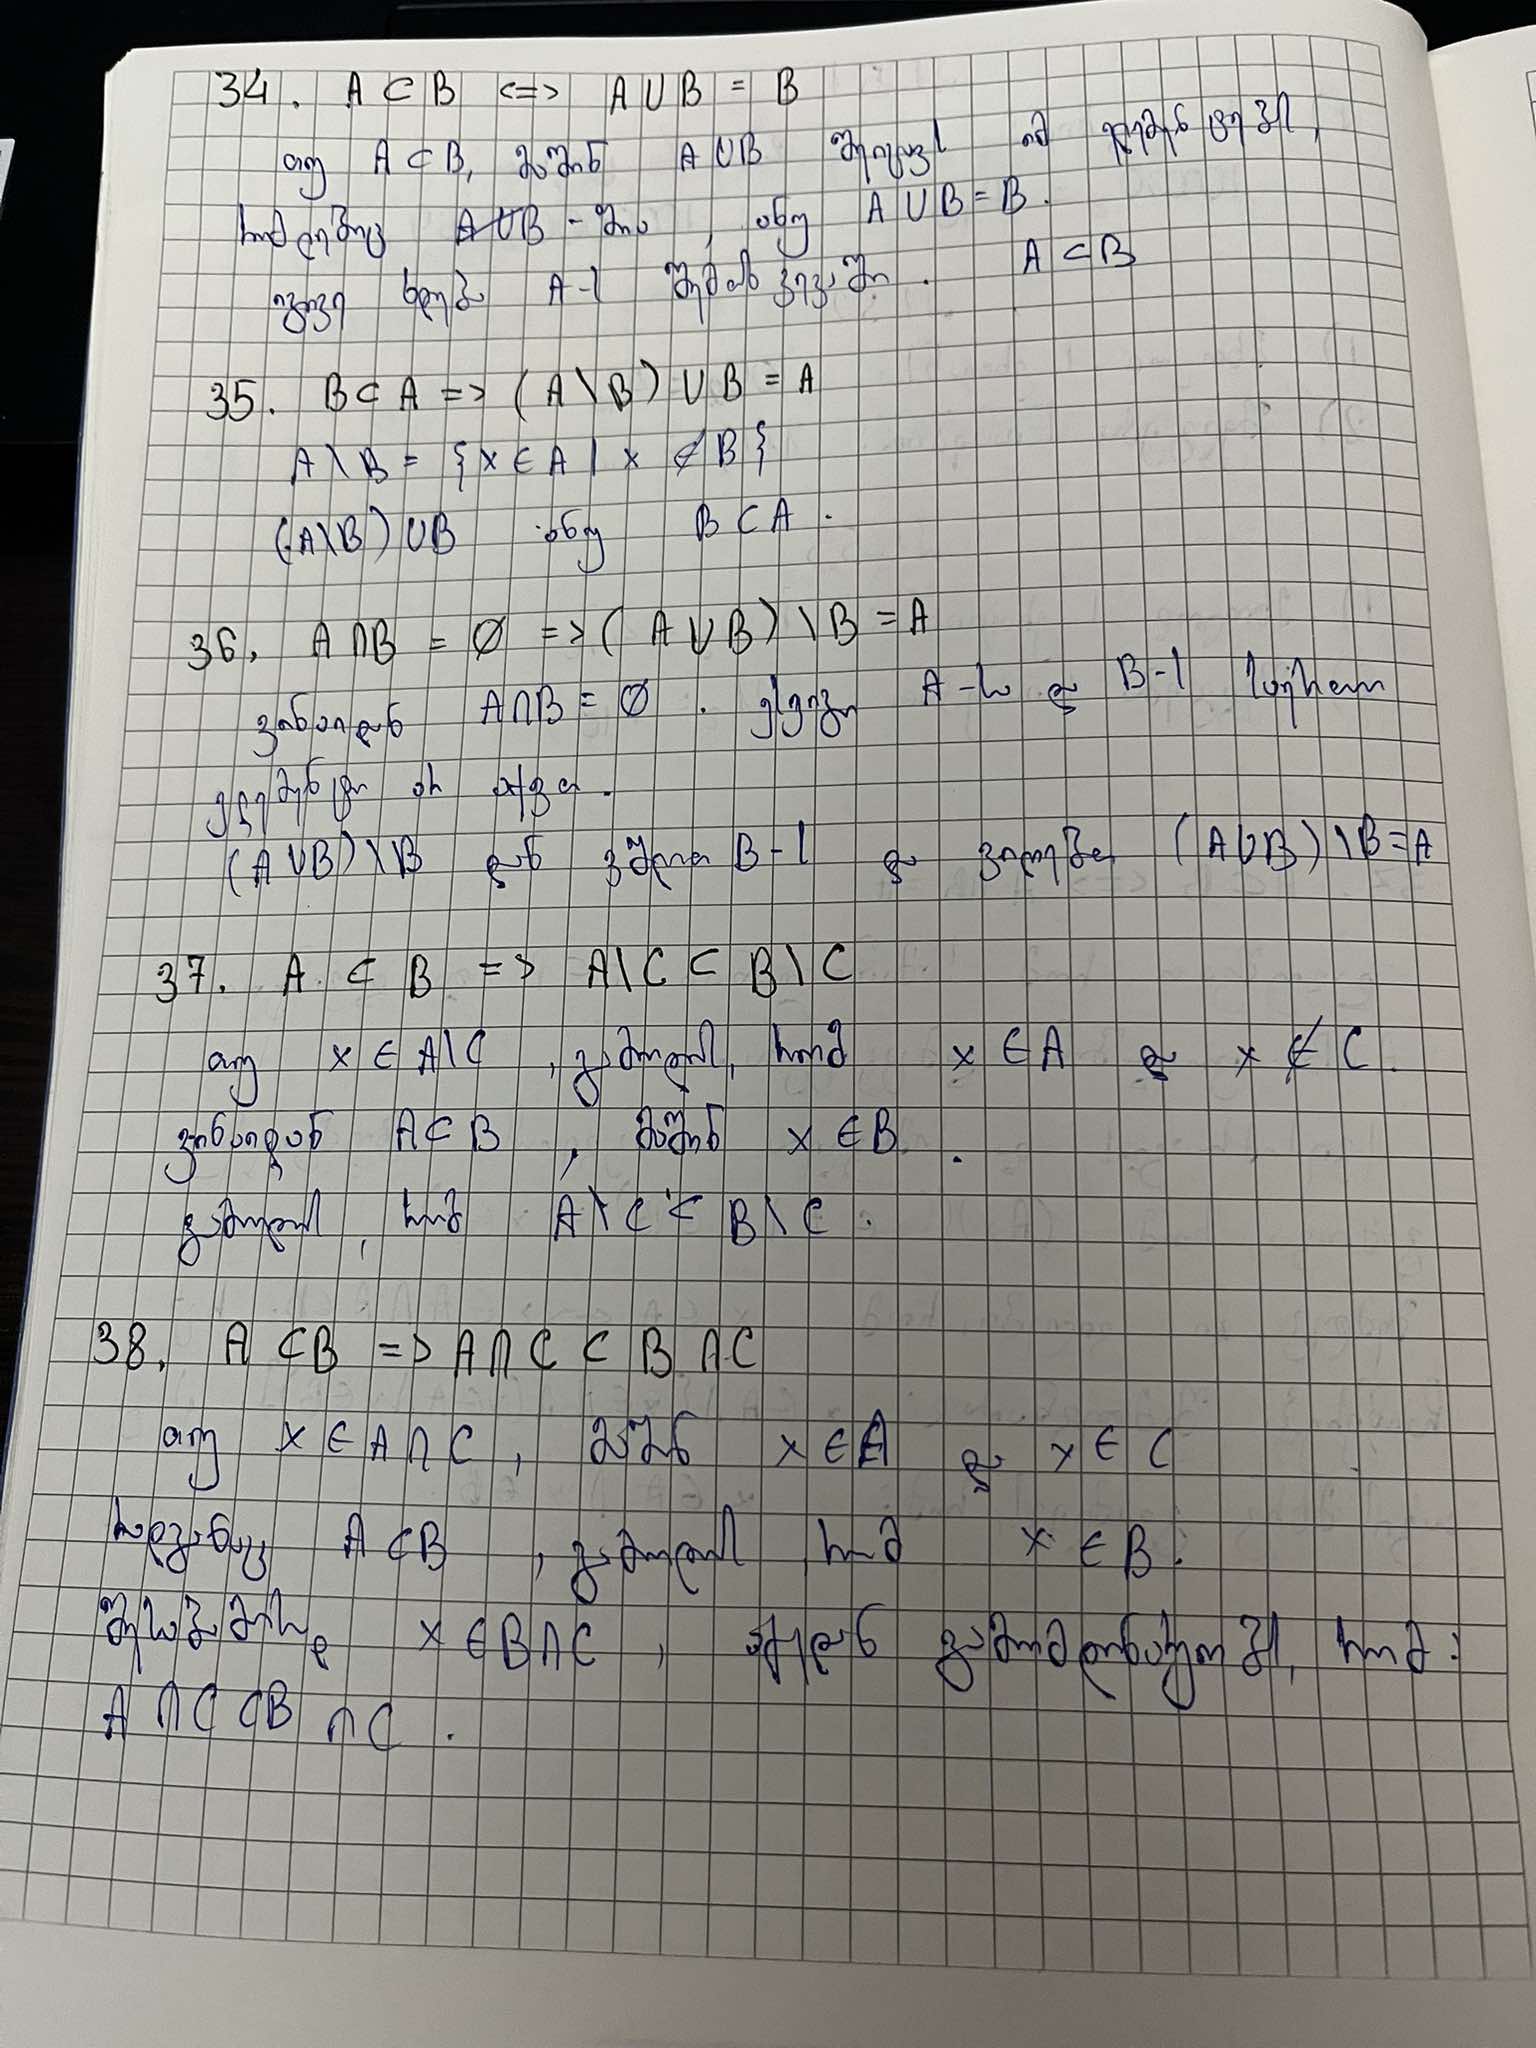 34. A ⊂ B <=> A ∪ B = B
თუ A ⊂ B, მაშინ A ∪ B შეიცავს იმ ელემენტებს,
რომლებიც B - შია, ანუ A ∪ B = B.
A - ს A ⊂ B
35. B ⊂ A => (A \ B) ∪ B = A
A \ B = {x ∈ A | x ∉ B}
(A \ B) ∪ B ანუ B ⊂ A.
36. A ∩ B = ∅ => (A ∪ B) \ B = A
ვინაიდან A ∩ B = ∅. ესეიგი A - ს და B - ს საერთო
ელემენტები არ აქვთ.
(A ∪ B) \ B დან B - ს და (A ∪ B) \ B = A
37. A ⊂ B => A \ C ⊂ B \ C
თუ x ∈ A \ C, გამოდის, რომ x ∈ A და x ∉ C.
ვინაიდან A ⊂ B, მაშინ x ∈ B.
გამოდის, რომ A \ C ⊂ B \ C.
38. A ⊂ B => A ∩ C ⊂ B ∩ C
თუ x ∈ A ∩ C, მაშინ x ∈ A და x ∈ C
რადგანაც A ⊂ B, გამოდის რომ x ∈ B.
შესაბამისად x ∈ B ∩ C, აქედან გამომდინარეობს, რომ:
A ∩ C ⊂ B ∩ C.